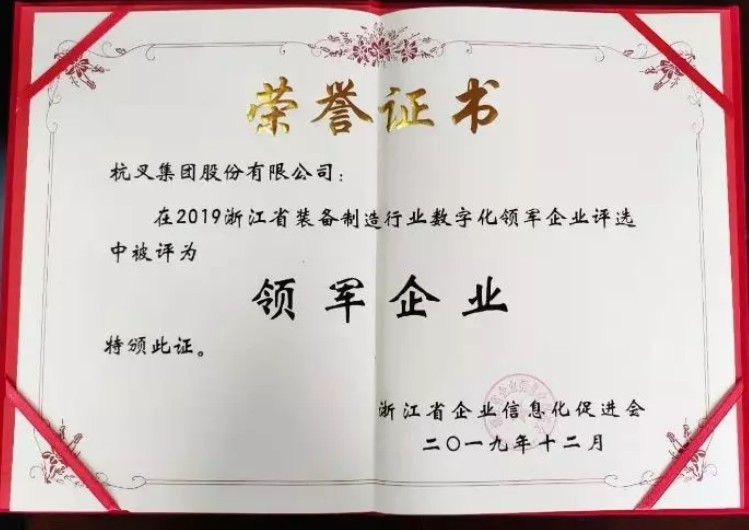 荣誉证书
杭叉集团股份有限公司：
在2019浙江省装备制造行业数字化领军企业评选
中被评为
领军企业
特颁此证。
浙江省企业信息化促进会
二〇一九年十二月